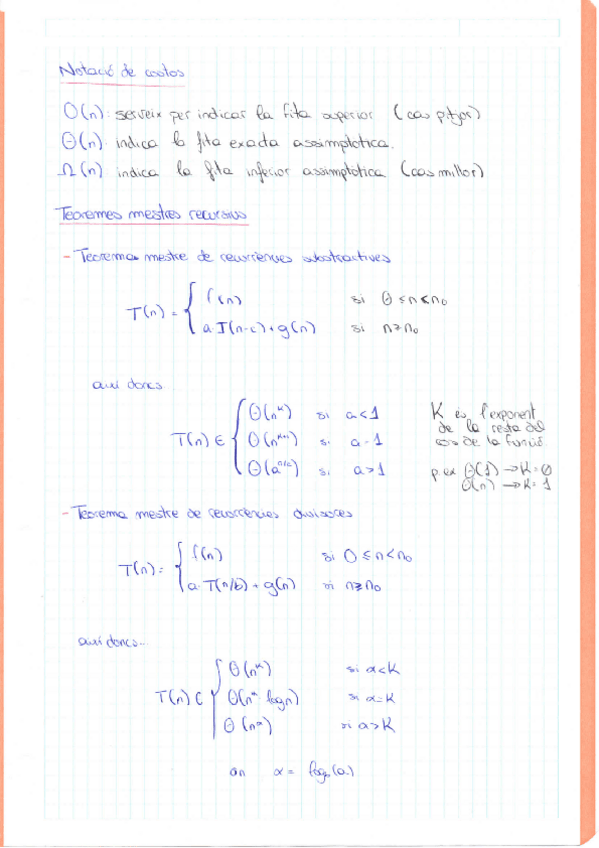 Notació de costos
O(n): serveix per indicar la fita superior (cas pitjor)
Θ(n): indica la fita exacta assimptotica.
Ω(n): indica la fita inferior assimptotica (cas millor)
Teoremes mestres recursius
- Teorema mestre de recurrències substractives
T(n) = { f(n) si 0 ≤ n < n₀
a·T(n-c) + g(n) si n ≥ n₀
així doncs...
T(n) ∈ { Θ(nᵏ) si a < 1
Θ(nᵏ⁺¹) si a = 1
Θ(aⁿ/ᶜ) si a > 1
K és l'exponent
de la resta del
cos de la funció.
p.ex Θ(1) → K = 0
Θ(n) → K = 1
- Teorema mestre de recurrències divisores
T(n) = { f(n) si 0 ≤ n < n₀
a·T(n/b) + g(n) si n ≥ n₀
així doncs...
T(n) ∈ { Θ(nᵏ) si α < K
Θ(nᵏ · log n) si α = K
Θ(n^α) si α > K
on α = log_b(a)